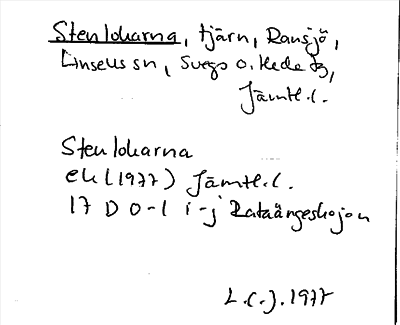 Stenlokarna, tjärn, Ransjö,
Linsells sn, Svegs o. Hede tg,
Jämtl.l.
Stenlokarna
ek (1977) Jämtl.l.
17 D 0-1 i-j Rataängeskojan
L.C.J. 1977